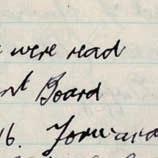 were read
Board
16. Forward